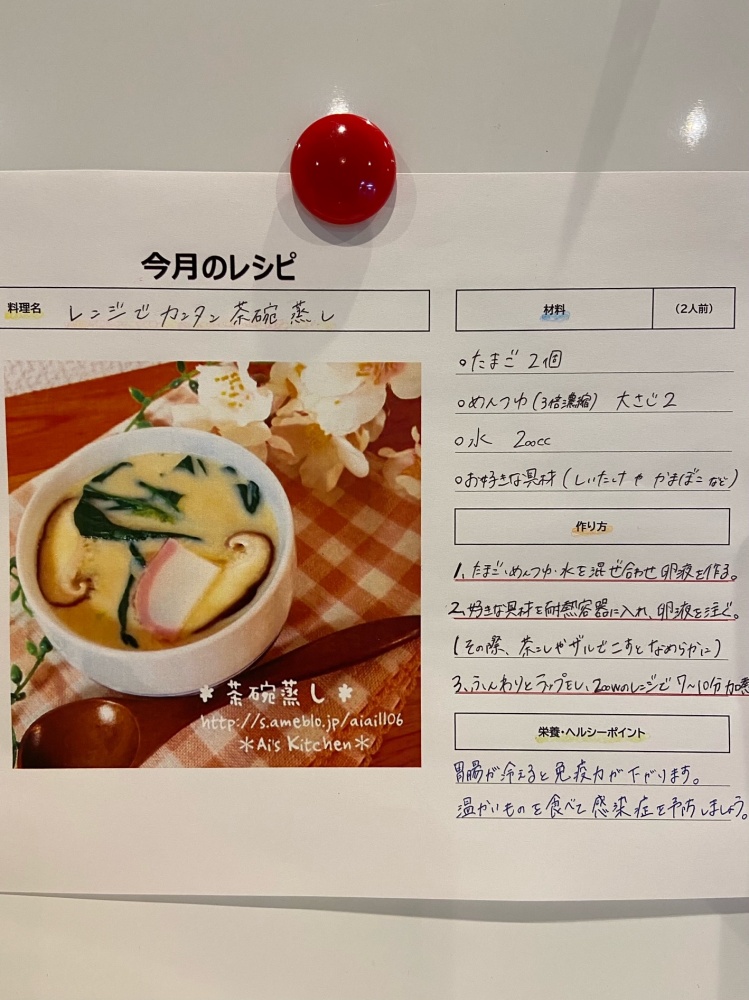 今月のレシピ
料理名 レンジでカンタン茶碗蒸し
＊茶碗蒸し＊
http://s.ameblo.jp/aiaill06
＊Ai's Kitchen＊
材料 （2人前）
○たまご 2個
○めんつゆ（3倍濃縮） 大さじ2
○水 200cc
○お好きな具材（しいたけやかまぼこなど）
作り方
1、たまご・めんつゆ・水を混ぜ合わせ卵液を作る。
2、好きな具材を耐熱容器に入れ、卵液を注ぐ。
（その際、茶こしやザルでこすとなめらかに）
3、ふんわりとラップをし、200wのレンジで7～10分加
栄養・ヘルシーポイント
胃腸が冷えると免疫力が下がります。
温かいものを食べて感染症を予防しましょう。